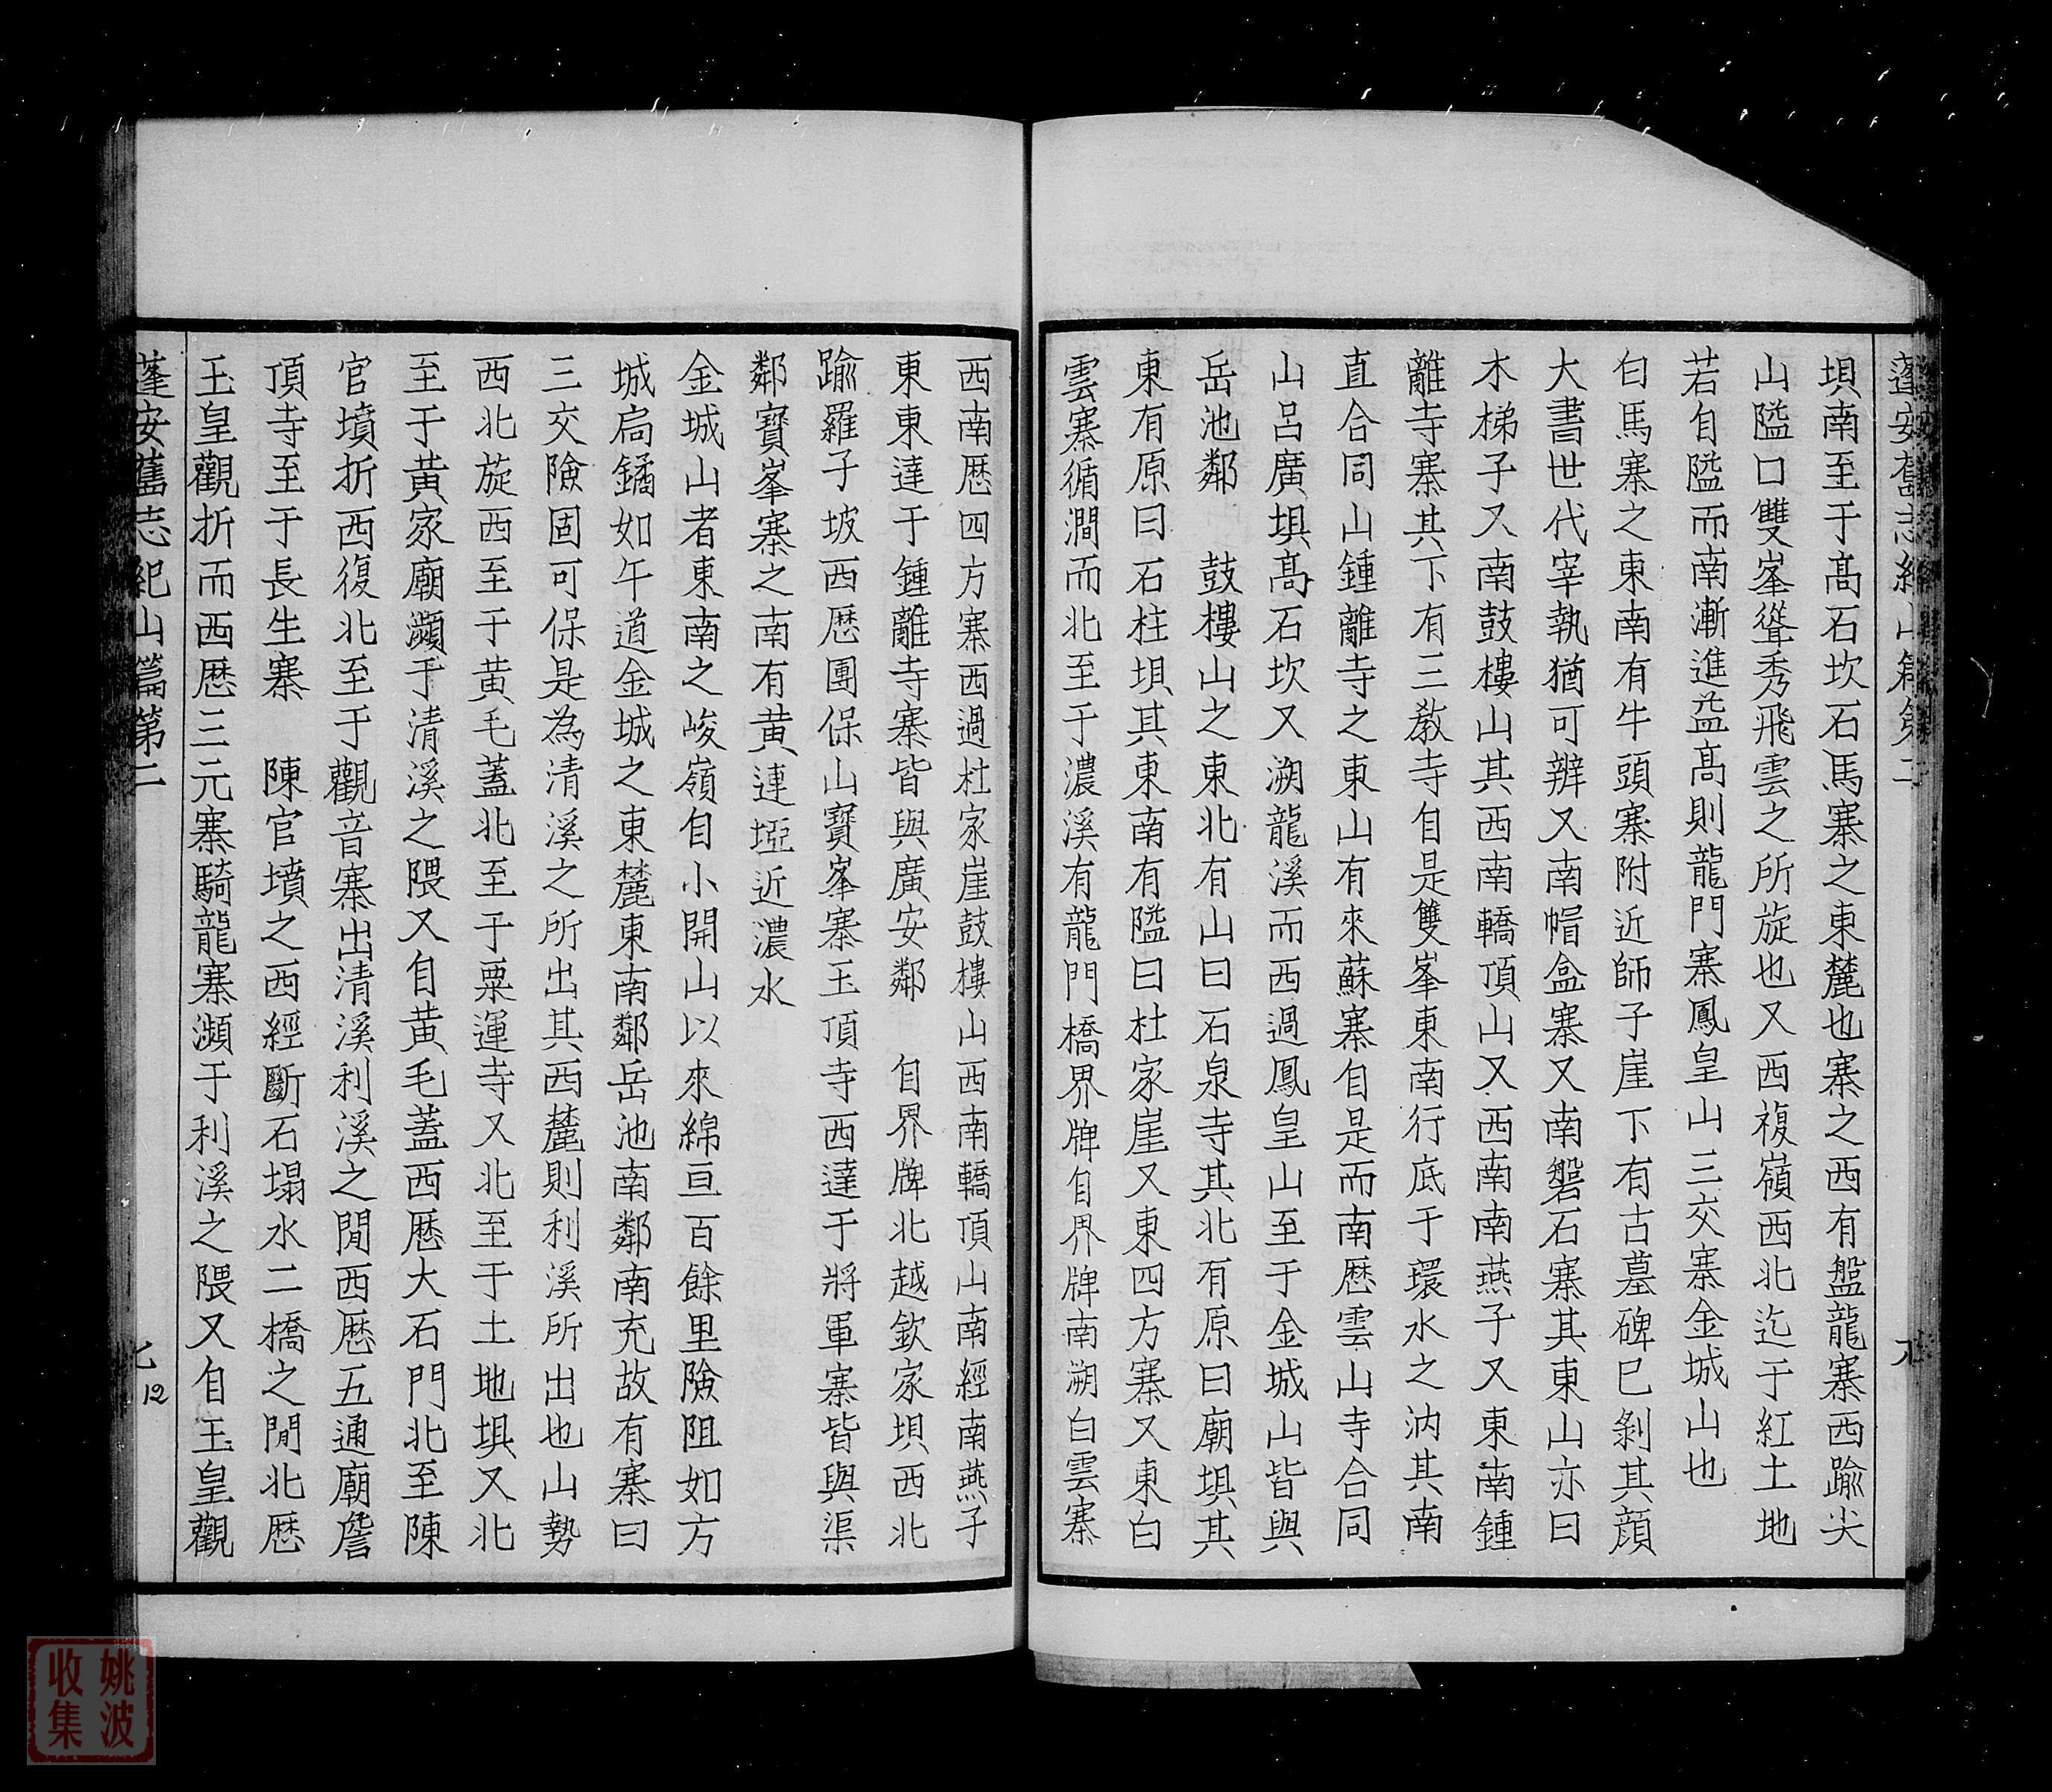 蓬安舊志紀山篇第二
垻南至于高石坎石馬寨之東麓也寨之西有盤龍寨西踰尖
山隘口雙峯聳秀飛雲之所旋也又西複嶺西北迄于紅土地
若自隘而南漸進益高則龍門寨鳳皇山三交寨金城山也
白馬寨之東南有牛頭寨附近師子崖下有古墓碑已剝其顔
大書世代宰執猶可辨又南帽盒寨又南磐石寨其東山亦曰
木梯子又南鼓樓山其西南轎頂山又西南南燕子又東南鍾
離寺寨其下有三教寺自是雙峯東南行底于環水之汭其南
直合同山鍾離寺之東山有來蘇寨自是而南歷雲山寺合同
山呂廣垻高石坎又溯龍溪而西過鳳皇山至于金城山皆與
岳池鄰　鼓樓山之東北有山曰石泉寺其北有原曰廟垻其
東有原曰石柱垻其東南有隘曰杜家崖又東四方寨又東白
雲寨循澗而北至于濃溪有龍門橋界牌自界牌南溯白雲寨
西南歷四方寨西過杜家崖鼓樓山西南轎頂山南經南燕子
東東達于鍾離寺寨皆與廣安鄰　自界牌北越欽家垻西北
踰羅子坡西歷團保山寶峯寨玉頂寺西達于將軍寨皆與渠
鄰寶峯寨之南有黄連埡近濃水
金城山者東南之峻嶺自小開山以來綿亘百餘里險阻如方
城扃鐍如午道金城之東麓東南鄰岳池南鄰南充故有寨曰
三交險固可保是為清溪之所出其西麓則利溪所出也山勢
西北旋西至于黄毛蓋北至于粟運寺又北至于土地垻又北
至于黄家廟瀕于清溪之隈又自黄毛蓋西歷大石門北至陳
官墳折西復北至于觀音寨出清溪利溪之閒西歷五通廟詹
頂寺至于長生寨　陳官墳之西經斷石塌水二橋之閒北歷
玉皇觀折而西歷三元寨騎龍寨瀕于利溪之隈又自玉皇觀
蓬安舊志紀山篇第二
七
12
姚波
收集